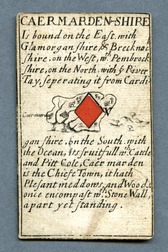 CAERMARDEN-SHIRE
Is bound on the East, with
Glamorgan shire, & Brecknac
shire, on the West, wt. Pembrook
shire, on the North, with ye Rever
Tay, seperating it from Cardi
gan shire, on the South, with
the Ocean, Its fruitfull in Cattle
and Pitt Cole, Caer marden
is the Chiefe Town, it hath
Plesant meddows, and Woods,
once encompast wt. Stone Wall,
apart yet standing.